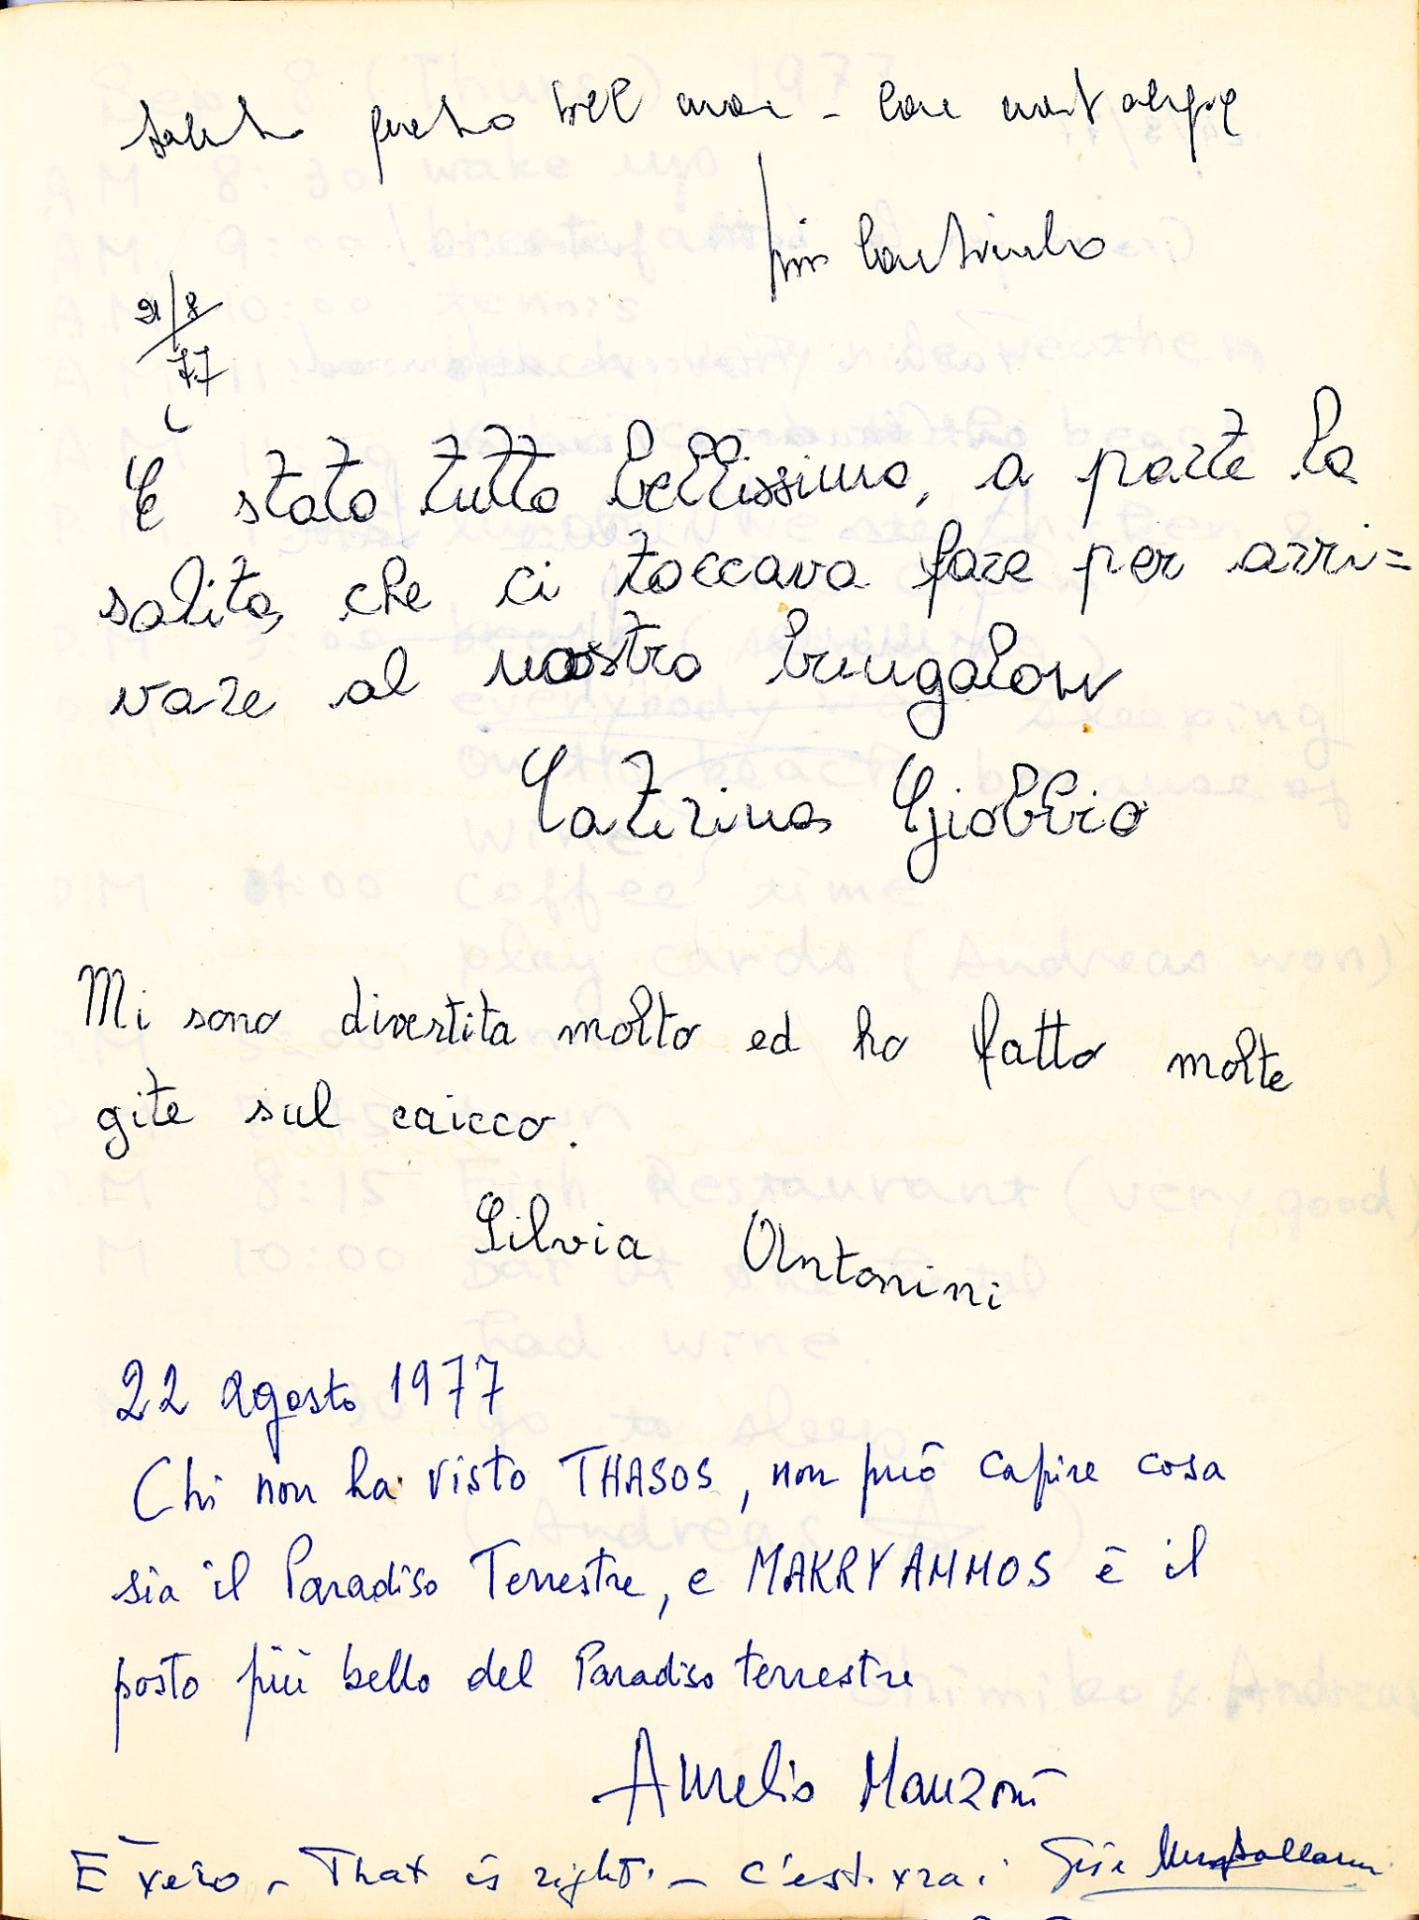 questo bel mare - con nostalgia
21/8
77
È stato tutto bellissimo, a parte la
salita, che ci toccava fare per arri=
vare al nostro bungalow
Caterina Giobbio
Mi sono divertita molto ed ho fatto molte
gite sul caicco.
Silvia Antonini
22 agosto 1977
Chi non ha visto THASOS, non può capire cosa
sia il Paradiso Terrestre, e MAKRYAMMOS è il
posto più bello del Paradiso terrestre
Aurelio Manzoni
È vero - That is right. - c'est vrai